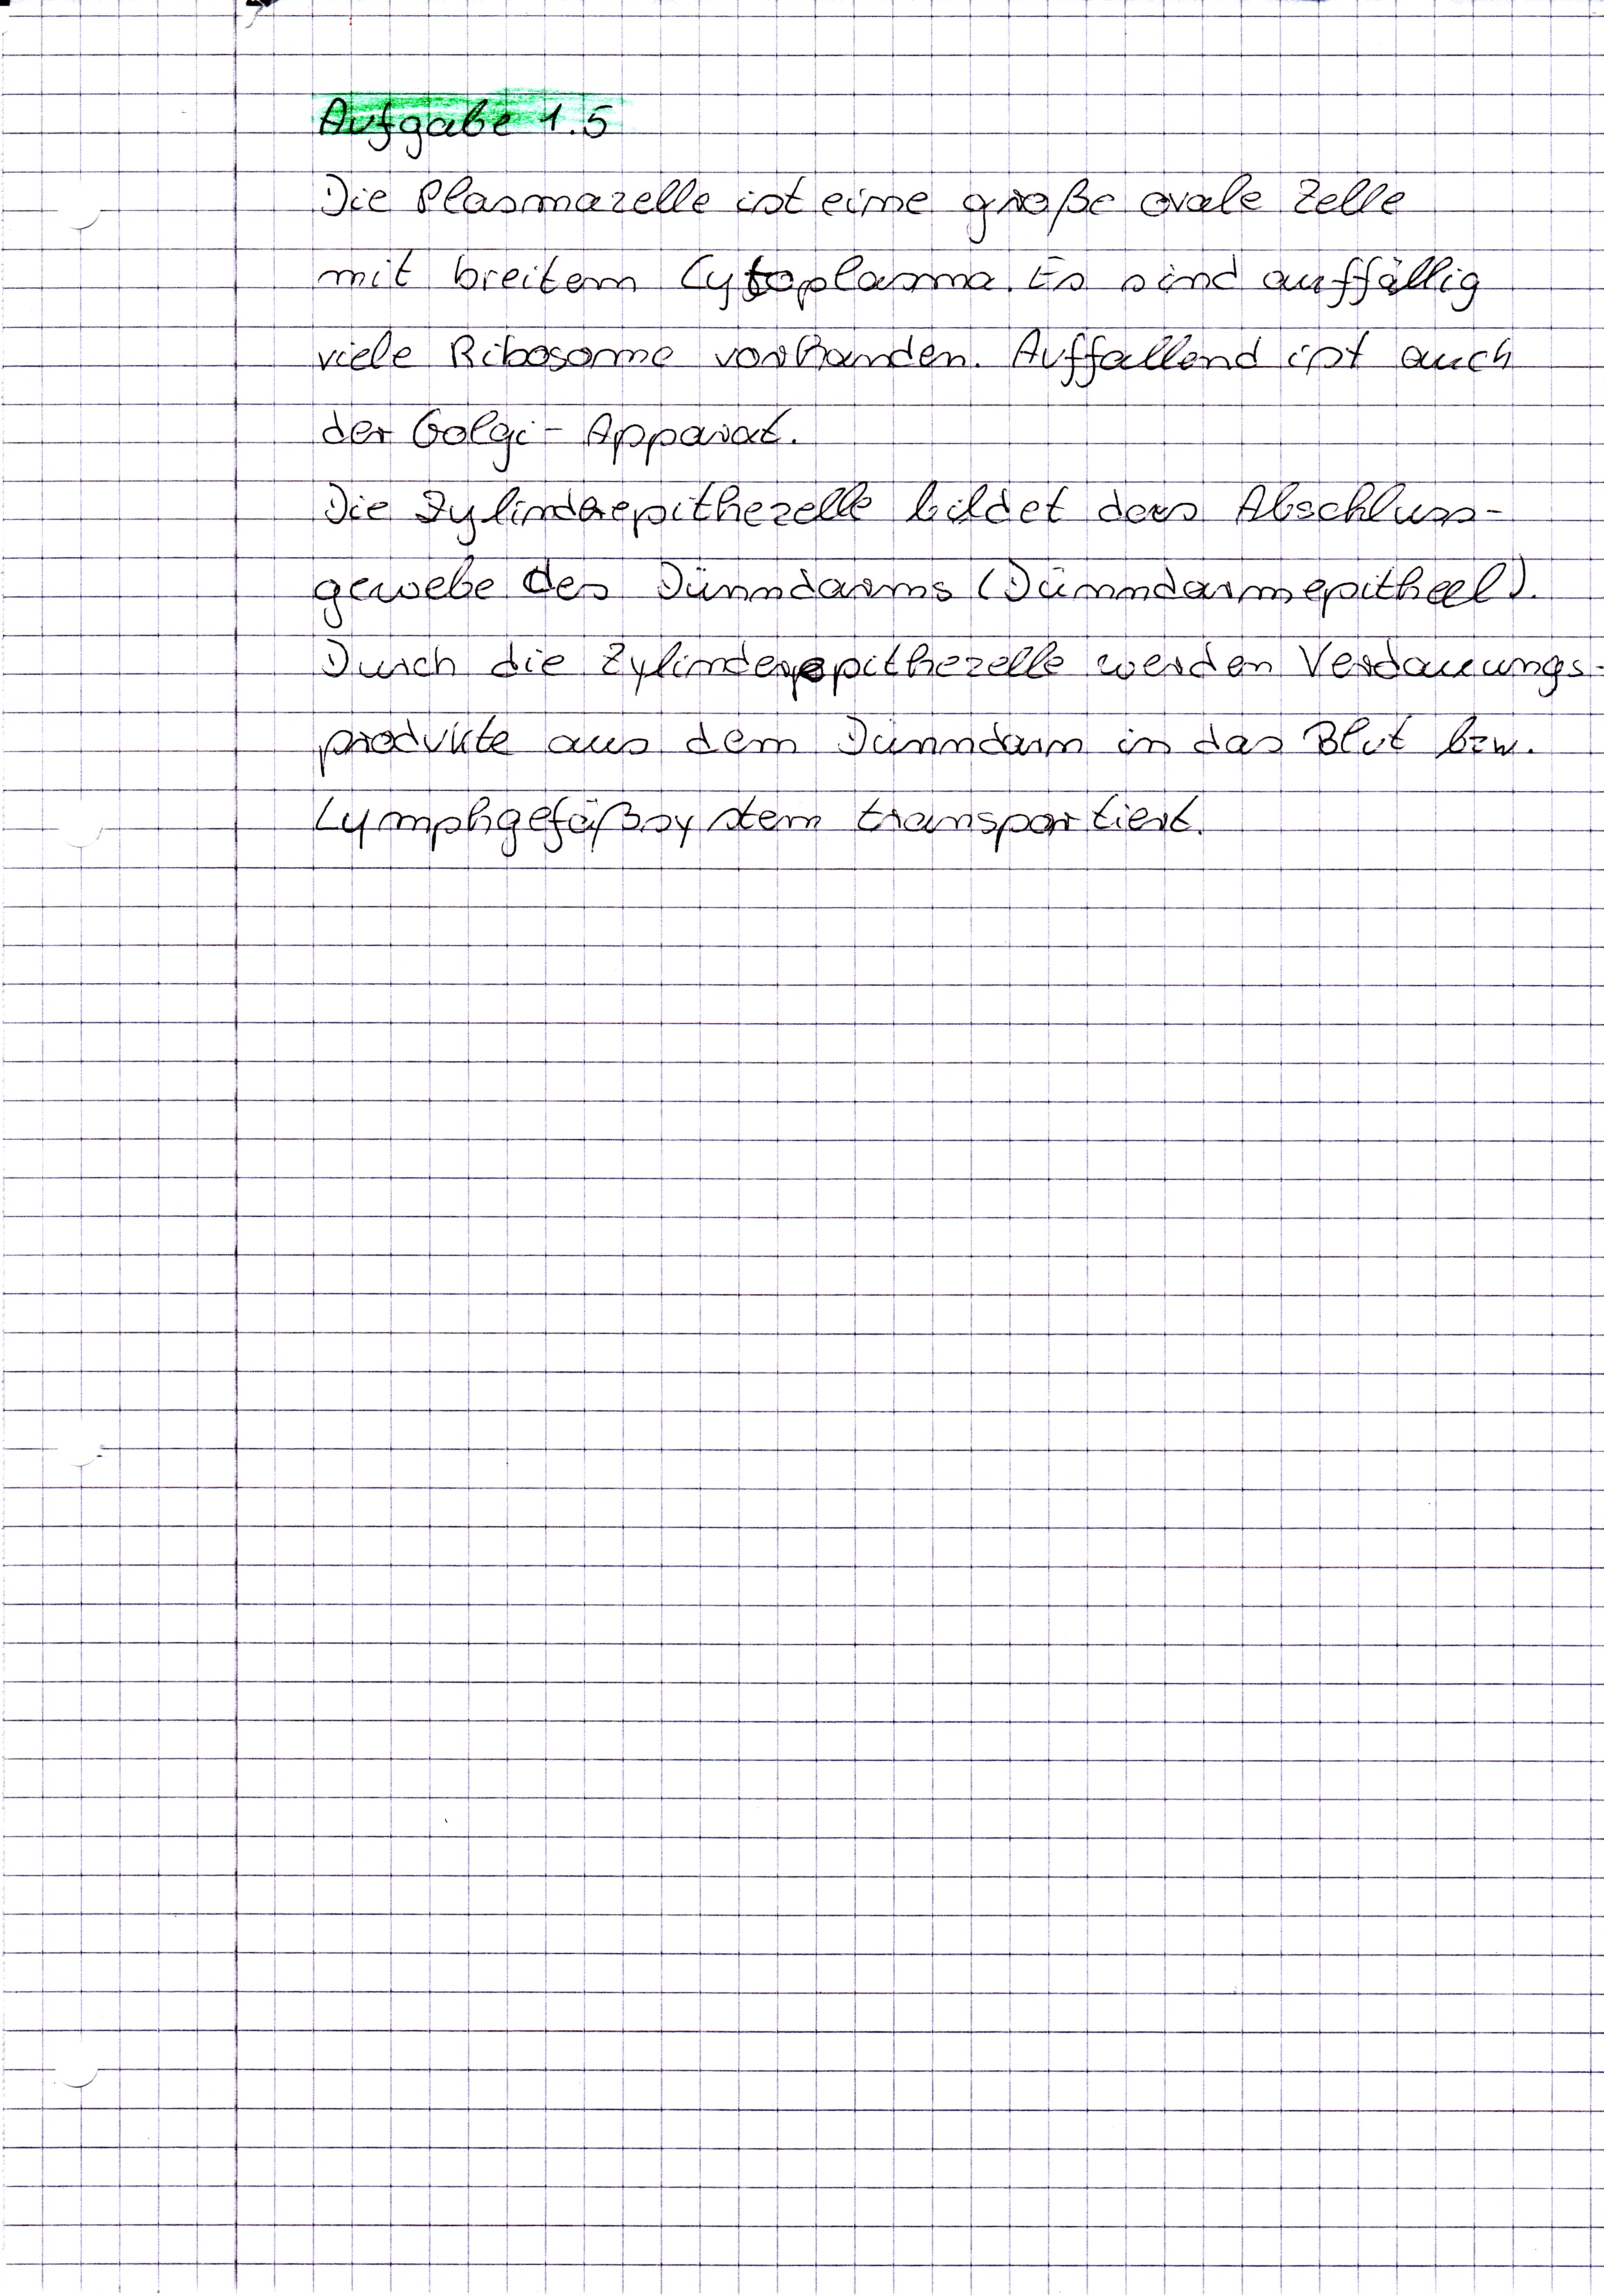 Aufgabe 1.5
Die Plasmazelle ist eine große ovale Zelle
mit breitem Cytoplasma. Es sind auffällig
viele Ribosome vorhanden. Auffallend ist auch
der Golgi-Apparat.
Die Zylinderepithezelle bildet das Abschluss-
gewebe des Dünndarms (Dünndarmepitheel).
Durch die Zylinderepithezelle werden Verdauungs-
produkte aus dem Dünndarm in das Blut bzw.
Lymphgefäßsystem transportiert.